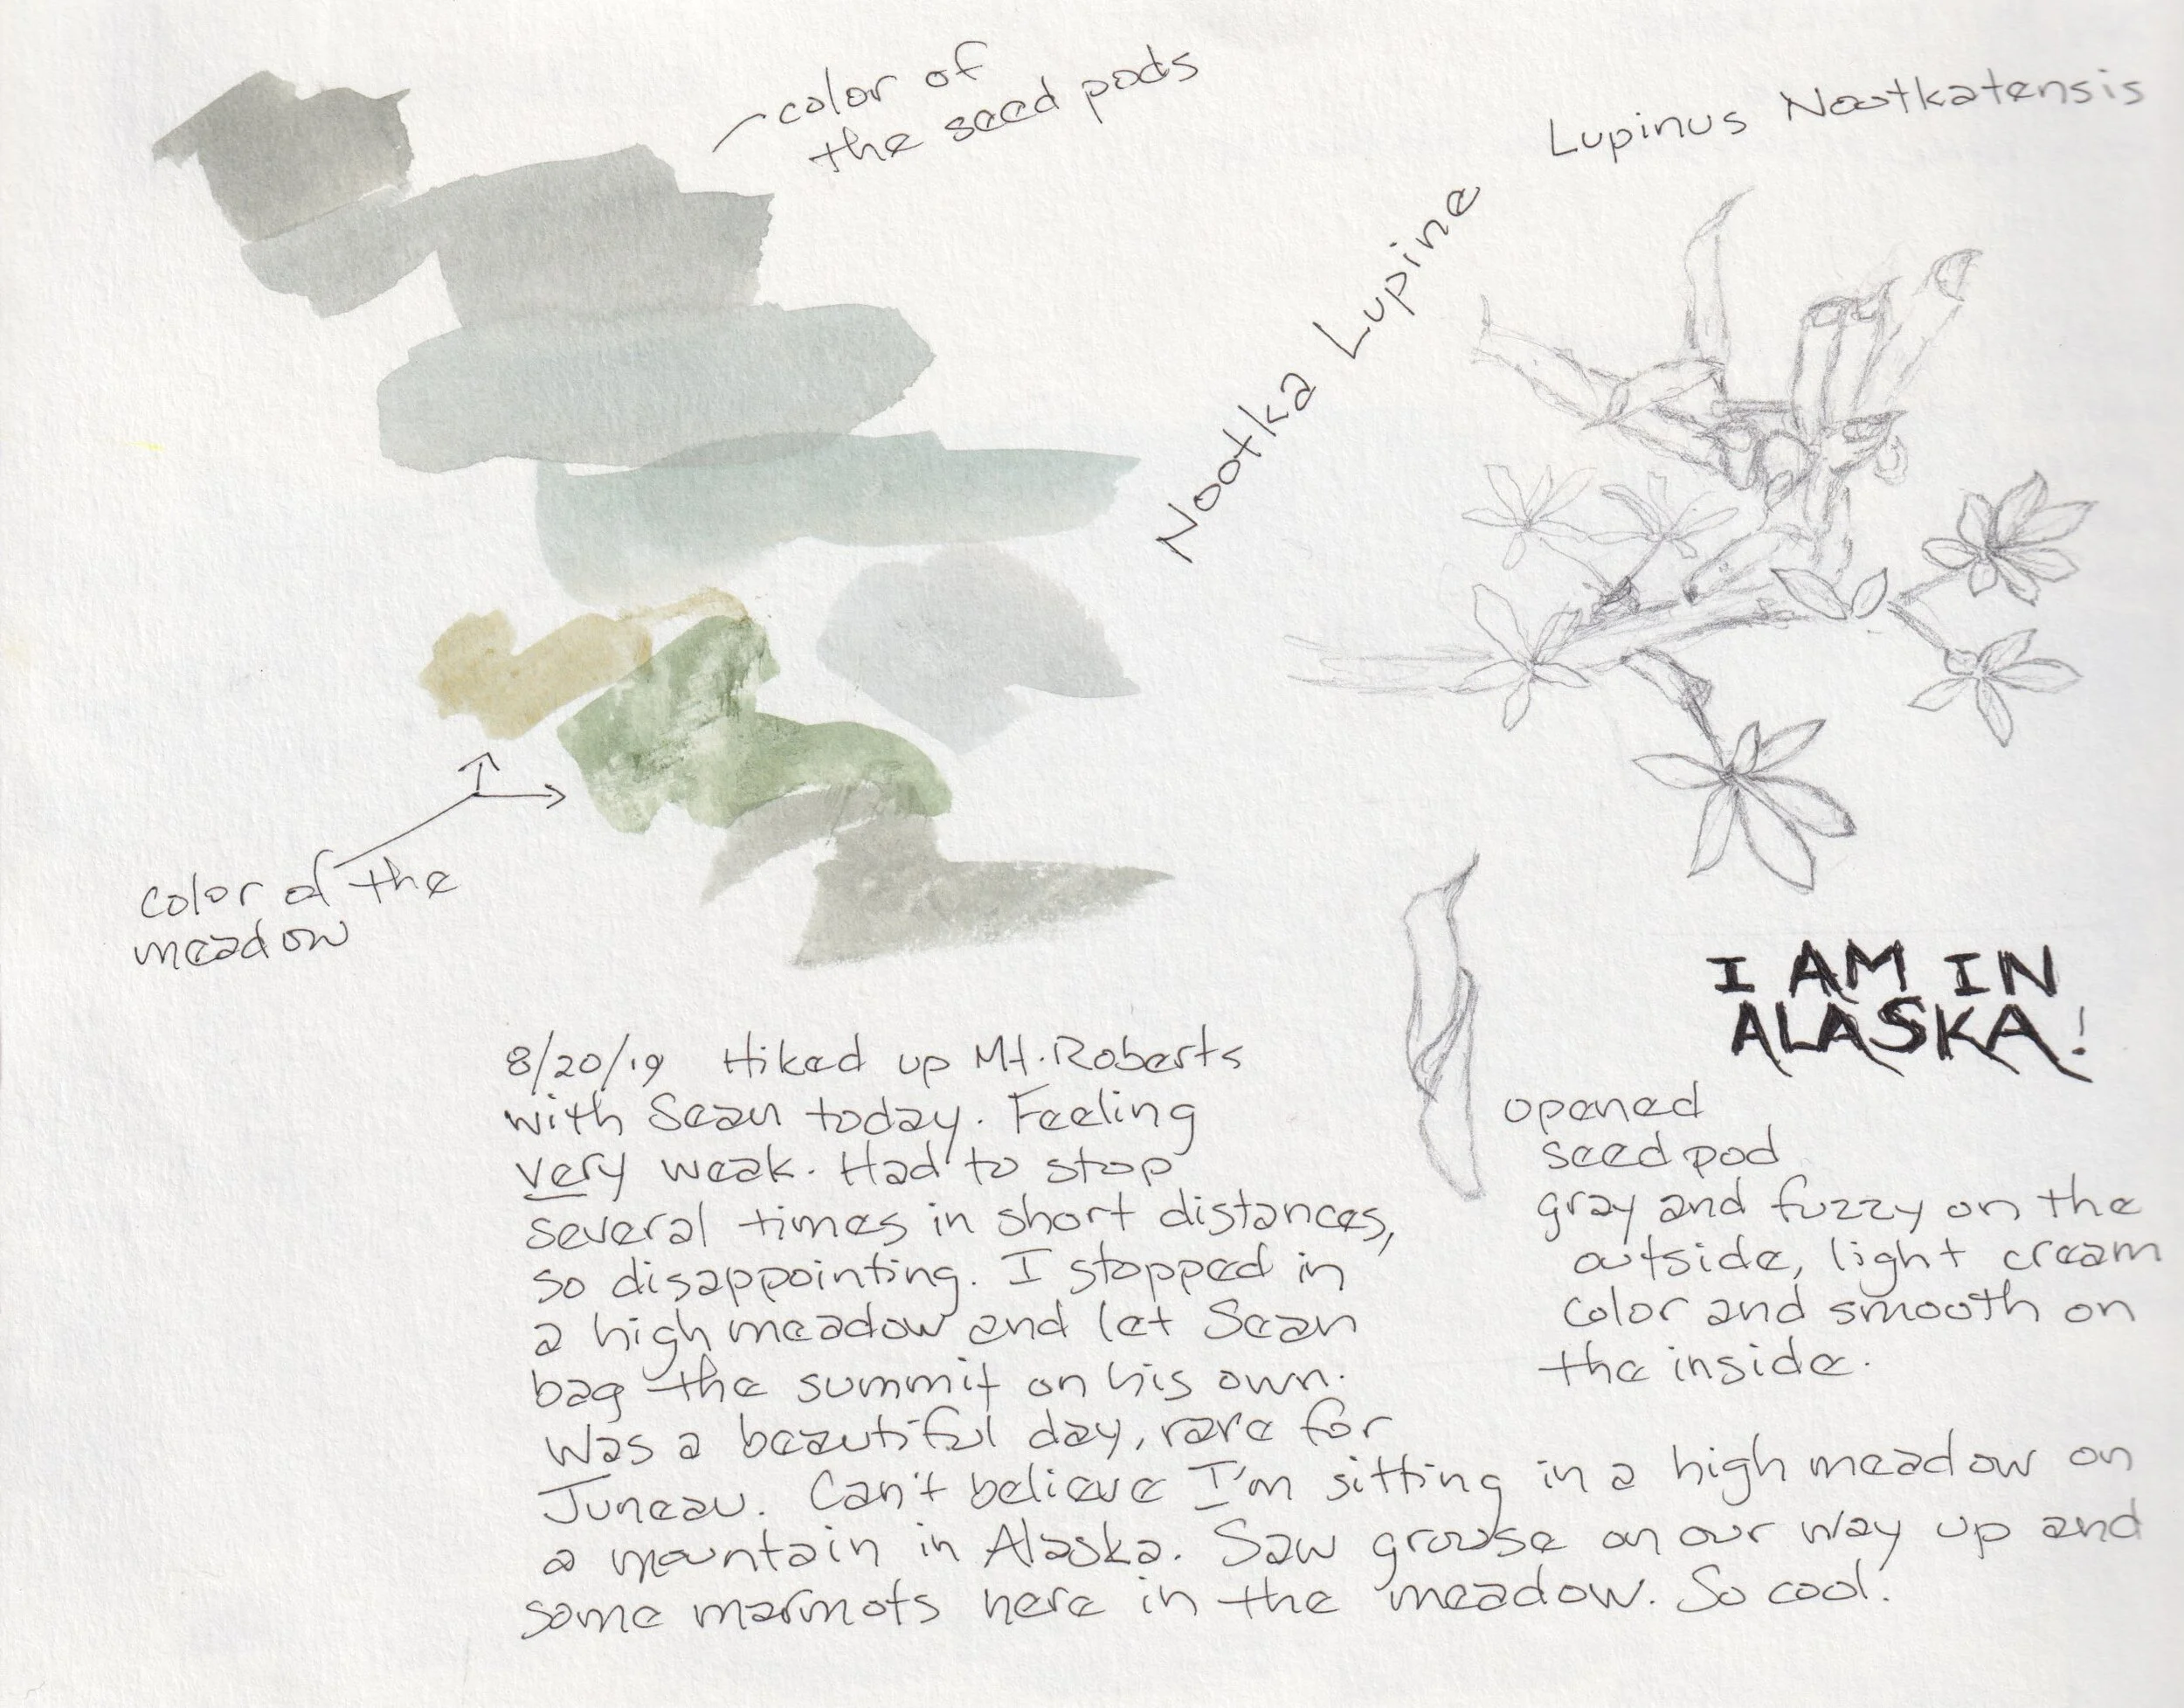 color of
the seed pods
Lupinus Nootkatensis
Nootka Lupine
color of the
meadow
I AM IN
ALASKA!
8/20/19 Hiked up Mt. Roberts
with Sean today. Feeling
very weak. Had to stop
several times in short distances,
so disappointing. I stopped in
a high meadow and let Sean
bag the summit on his own.
Was a beautiful day, rare for
Juneau. Can't believe I'm sitting in a high meadow on
a mountain in Alaska. Saw grouse on our way up and
some marmots here in the meadow. So cool.
opened
seed pod
gray and fuzzy on the
outside, light cream
color and smooth on
the inside.